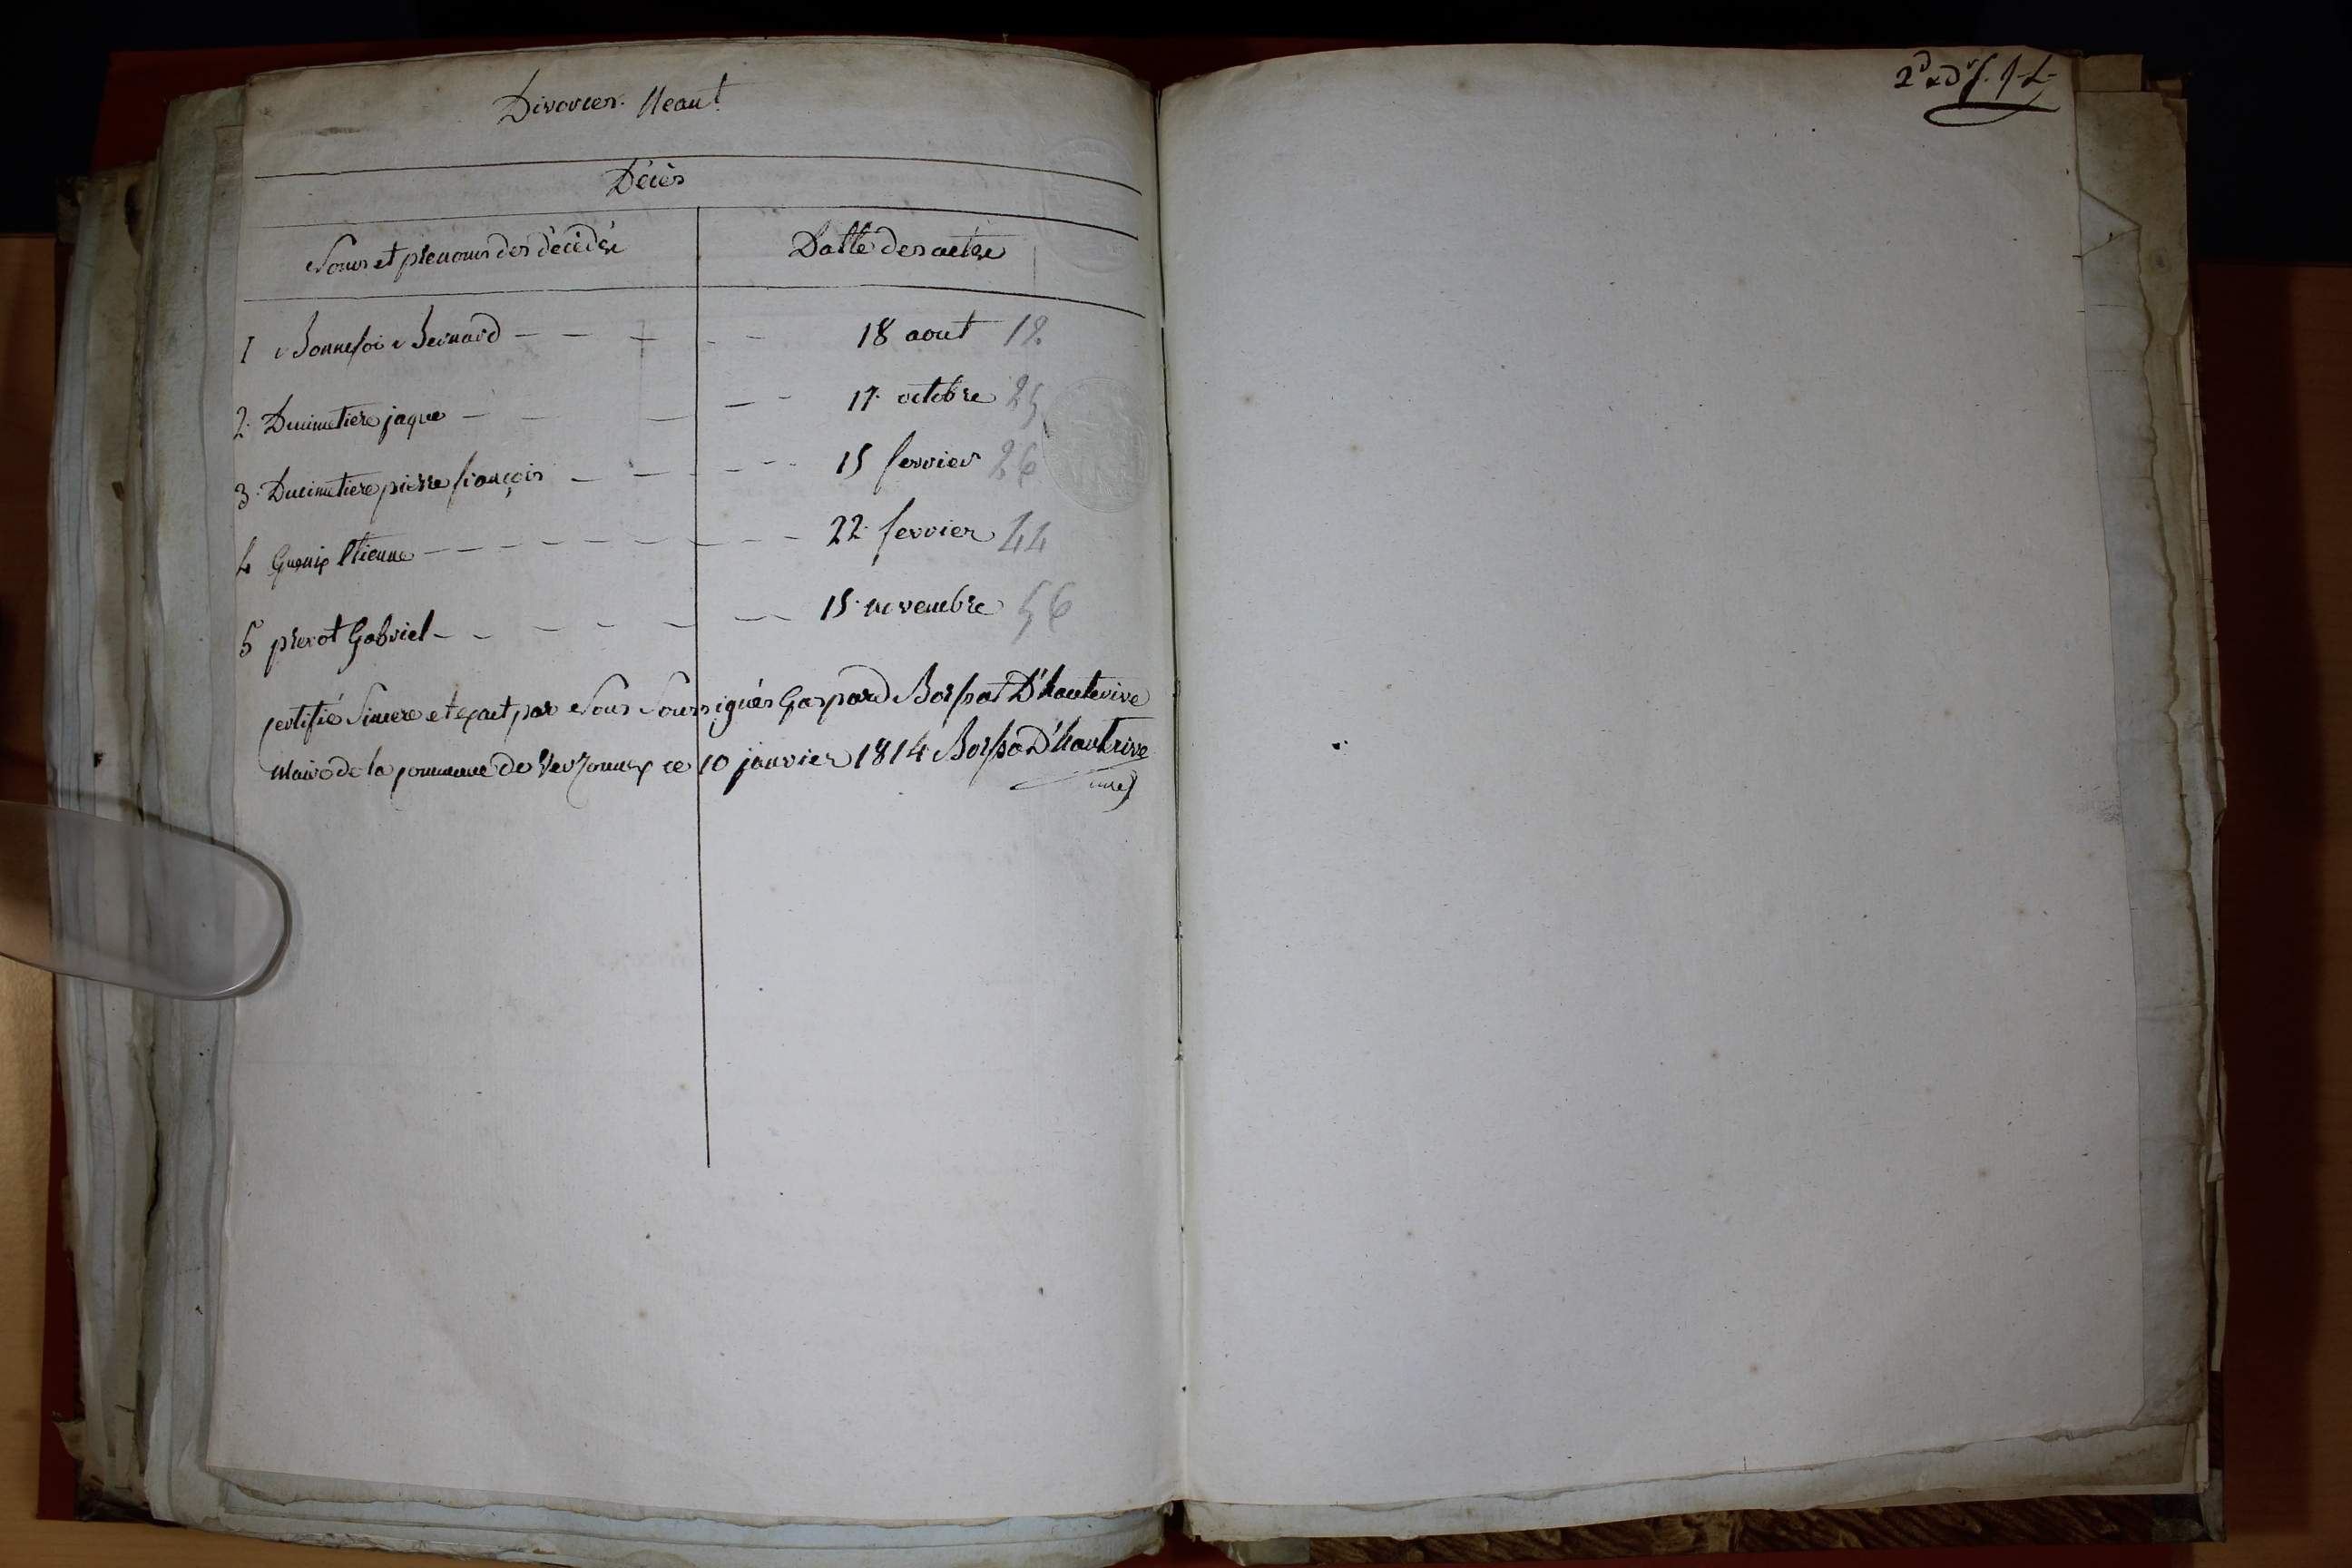 Divorces. Neant
Décès
Noms et prenoms des décédés
Datte des actes
1 Bonnefoi Bernard - - - - - 18 aout 18
2. Ducimetiere jaque - - - - - 17. octobre 25
3. Ducimetiere pierre françois - - - - - 15 fevrier 26
4 Etienne - - - - - 22. fevrier 44
5 prevot Gabriel - - - - - 15. novembre 56
certifié Sincere et exact par Nous Soussignés Gaspard D'hauterive
Maire de la commune de Versonnex ce 10 janvier 1814 D'hauterive